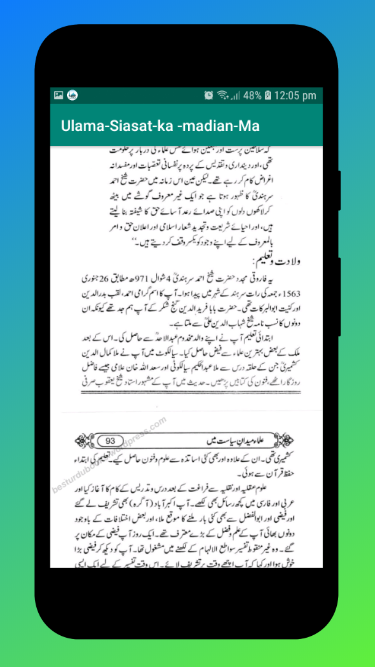 48% 12:05 pm
Ulama-Siasat-ka -madian-Ma
کہ سلاطین پرست اور بھینٹ ہوائے نفس علماء کی دربار پر حکومت
تھی، اور دینداری و تقدس کے پردہ پر نفسانی تعصبات اور مفسدانہ
اغراض کام کر رہے تھے۔ لیکن عین اس زمانہ میں حضرت شیخ احمد
سرہندیؒ کا ظہور ہوتا ہے جو ایک غیر معروف گوشے میں بیٹھ
کر لاکھوں دلوں کو اپنی صدائے رعد آسائے حق کا شیفتہ بنا لیتے
ہیں، اور احیائے شریعت و تجدید شعار اسلامی اور اعلان حق و امر
بالمعروف کے لیے اپنے وجود کو یکسر وقف کر دیتے ہیں۔‘‘
ولادت و تعلیم:
یہ فاروقی مجدد حضرت شیخ احمد سرہندیؒ 4 شوال 971ھ مطابق 26 جنوری
1563ء جمعہ کی رات سرہند کے شہر میں پیدا ہوا۔ آپ کا اسم گرامی احمد، لقب بدرالدین
اور کنیت ابوالبرکات تھی۔ حضرت بابا فرید الدین گنج شکر کے آپ ہم جد تھے کیونکہ ان
دونوں کا نسب نامہ شیخ شہاب الدین علی سے ملتا ہے۔
ابتدائی تعلیم آپ نے اپنے والد مخدوم عبدالاحد سے حاصل کی۔ اس کے بعد
ملک کے بعض بہترین علماء سے فیض حاصل کیا۔ سیالکوٹ میں آپ نے ملا کمال الدین
کشمیریؒ جن کے حلقہ درس سے ملا عبدالحکیم سیالکوٹی اور سعد اللہ خان علامی جیسے فاضل
روزگار اٹھے، فنون کی کتابیں پڑھیں۔ حدیث میں آپ کے مشہور استاد شیخ یعقوب صرفی
علماء میدانِ سیاست میں 93
besturdubooks.wordpress.com
کشمیری تھی۔ ان کے علاوہ اور بھی کئی اساتذہ سے علوم و فنون حاصل کیے۔ تعلیم کی ابتداء
حفظ قرآن سے ہوئی۔
علوم عقلیہ اور نقلیہ سے فراغت کے بعد درس و تدریس کے کام کا آغاز کیا اور
عربی اور فارسی میں کچھ رسائل بھی لکھے۔ آپ اکبر آباد (آگرہ) بھی تشریف لے گئے
اور فیضی اور ابوالفضل سے بھی کئی بار ملنے کا موقع ملا، اور بعض اختلافات کے باوجود
دونوں بھائی آپ کے علم و فضل کے بڑے معترف تھے۔ ایک روز آپ فیضی کے مکان پر
گئے۔ وہ غیر منقوط تفسیر سواطع الالہام کے لکھنے میں مشغول تھا۔ آپ کو دیکھ کر فیضی بڑا
خوش ہوا اور کہا کہ آپ اچھے وقت پر تشریف لائے۔ اس وقت تفسیر کے لیے ایک ایسی